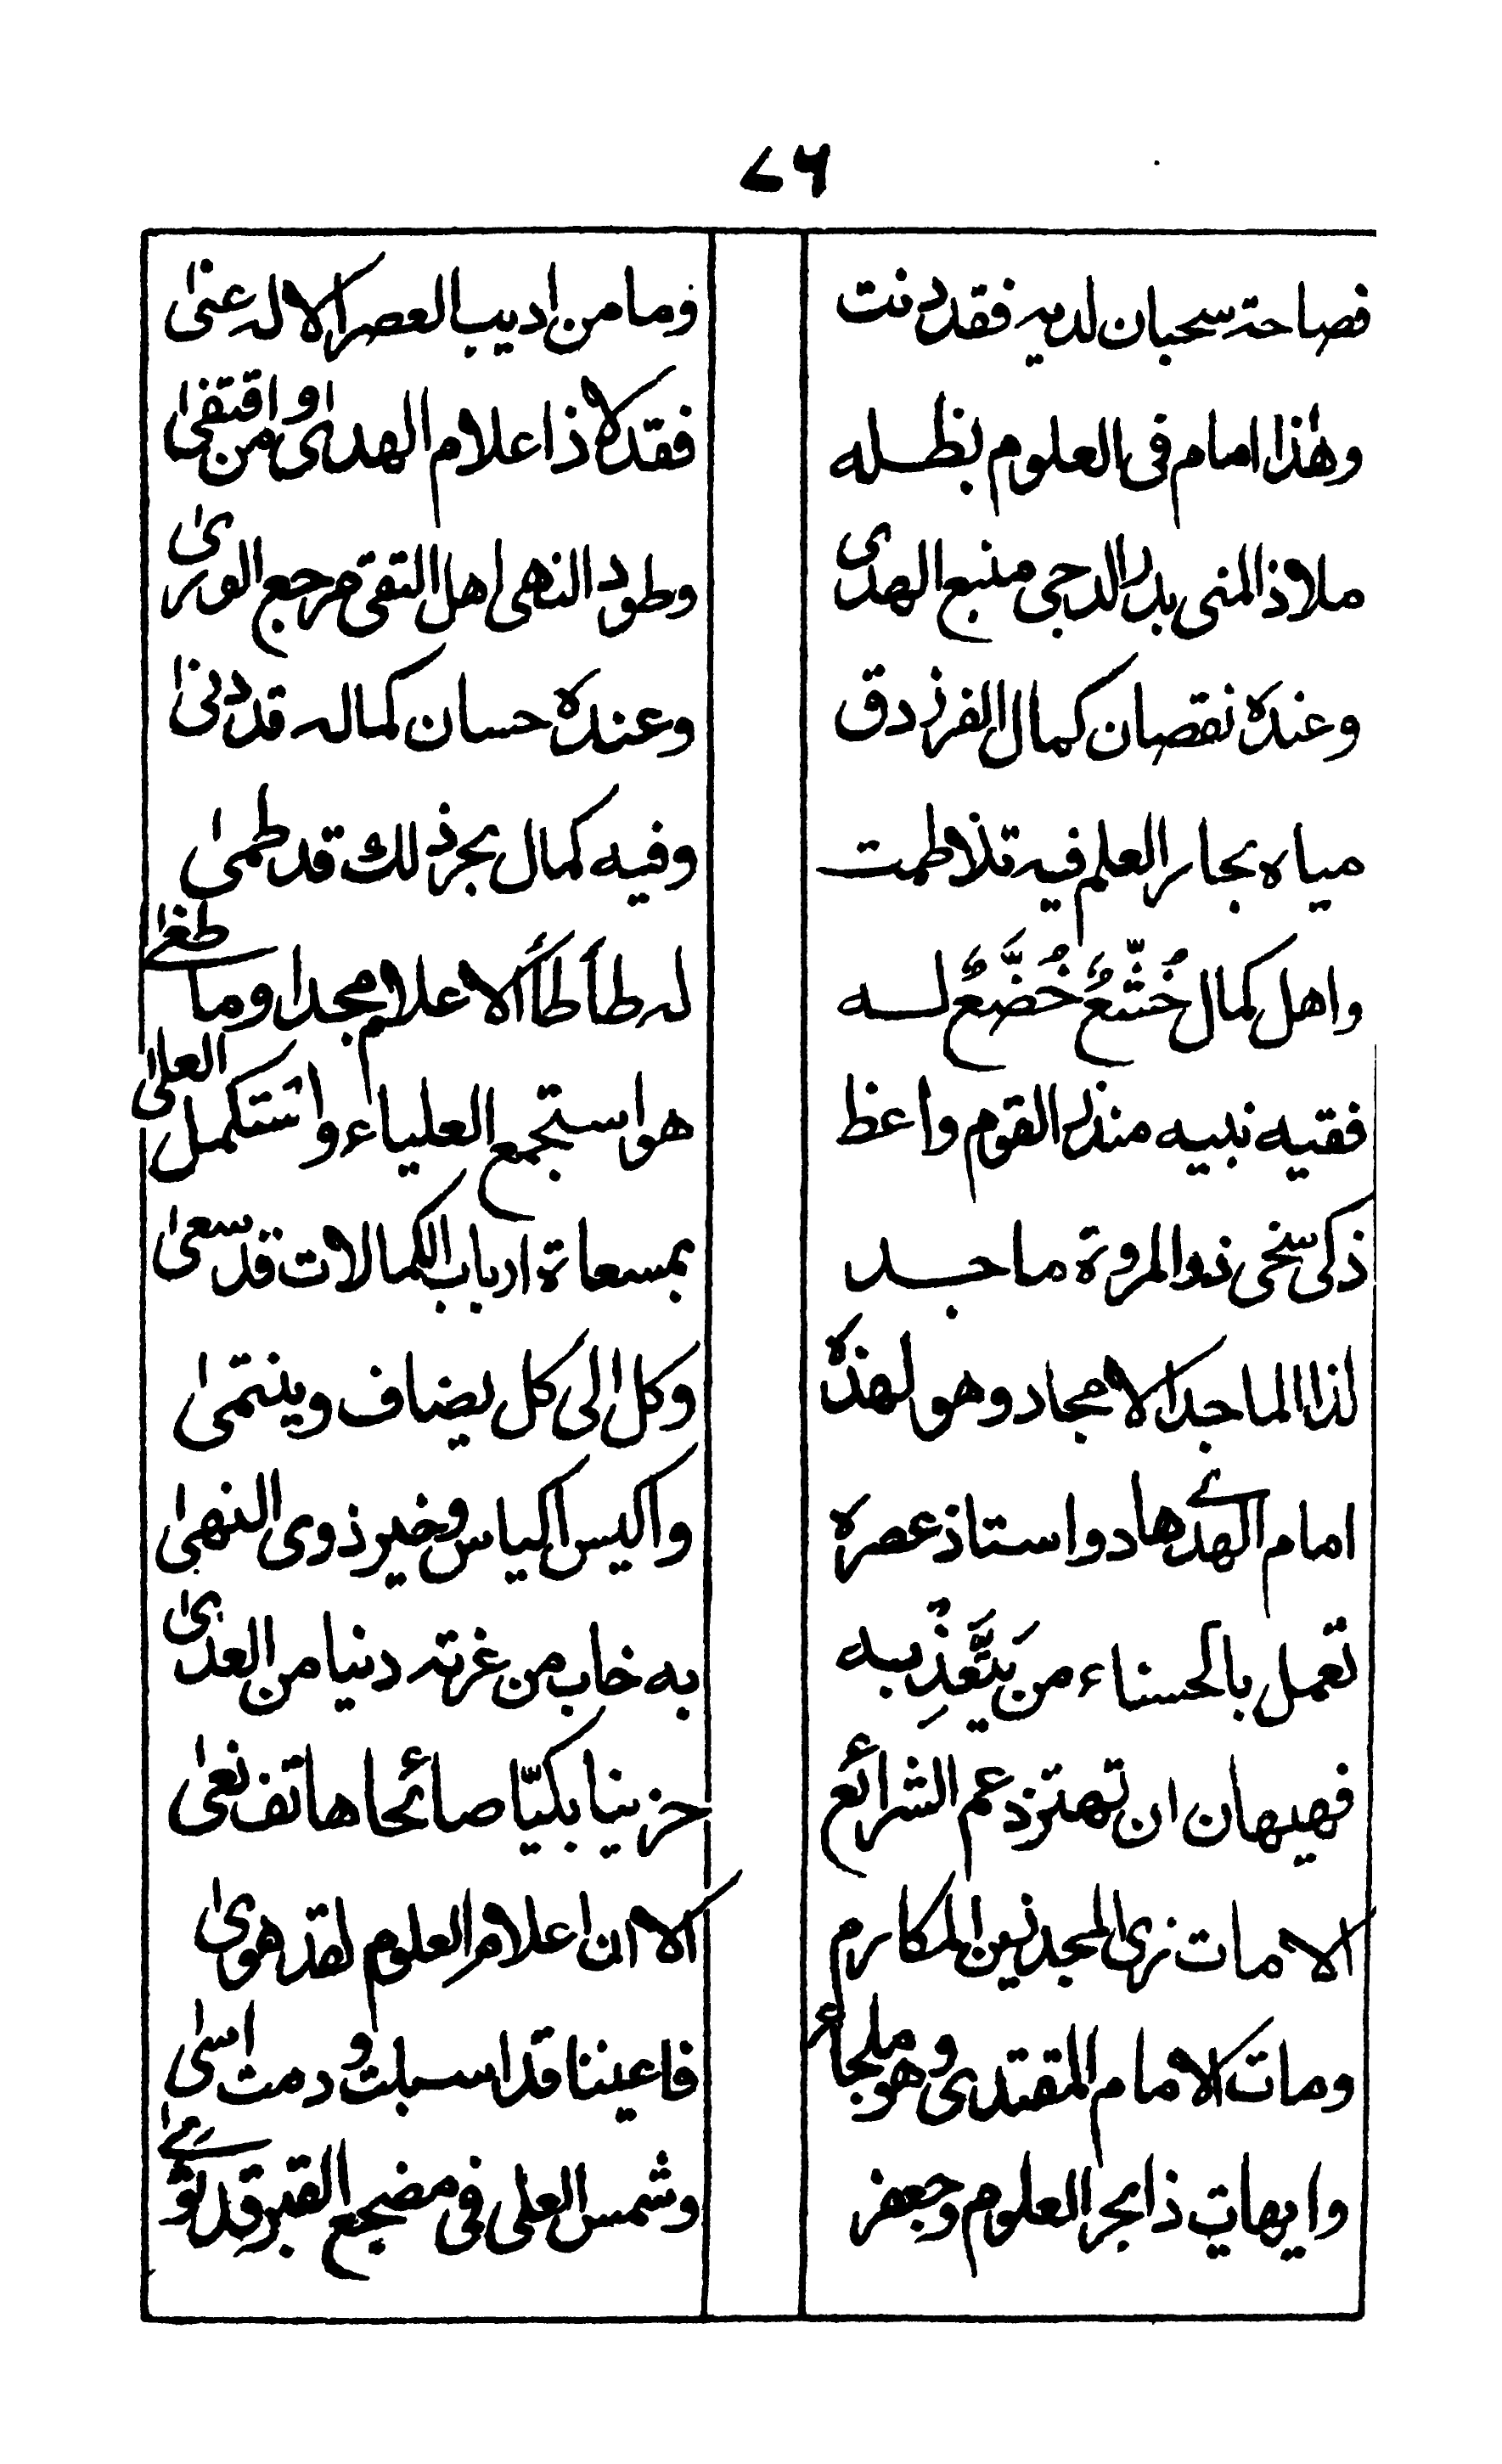 ۷۶
فصاحة سحبان لديه فقد دنت وما من اديب العصر الا له عنىٰ
وهٰذا امام فى العلوم بظله فقد لاذ اعلام الهدىٰ او من اقتفىٰ
ملاذ المنى بدر الدجى منبع الهدىٰ وطود النهى اهل التقى مرجع الورىٰ
وعنده نقصان كمال الفرزدق وعنده حسان كماله قد دنىٰ
مياه بحار العلم فيه تلاطمت وفيه كمال بحر ذلك قد طمىٰ
واهل كمال خُشَّعٌ خُضَّعٌ له له طأطأ الاعلام مجدا وما طغىٰ
فقيه نبيه منذر القوم واعظ هو استجمع العلياء واستكمل العلىٰ
ذكى سخى ذو المروة ماجد بمسعاة ارباب الكمالات قد سعىٰ
لذا الماجد الامجاد وهو لهذه وكل الى كل يضاف وينتمىٰ
امام الهدے هاد واستاذ عصره واكيس اكياس وخير ذوى النهىٰ
تعمل بالحسناء من يَتَّعِذْ به به خاب من غرته دنيا من العدىٰ
فهيهان ان تهتز دعم الشرائع حزينا بكيّا صائحا هاتف نعىٰ
الا مات نرى المجد نين المكارم الا ان اعلام العلوم لقد هوىٰ
ومات الامام المقتدى وهو ملجأ فاعيننا قد اسبلت ودمت اسىٰ
وايهات ذا بحر العلوم وجعفر وشمس العلى فى مضجع القبر قد ثوےٰ